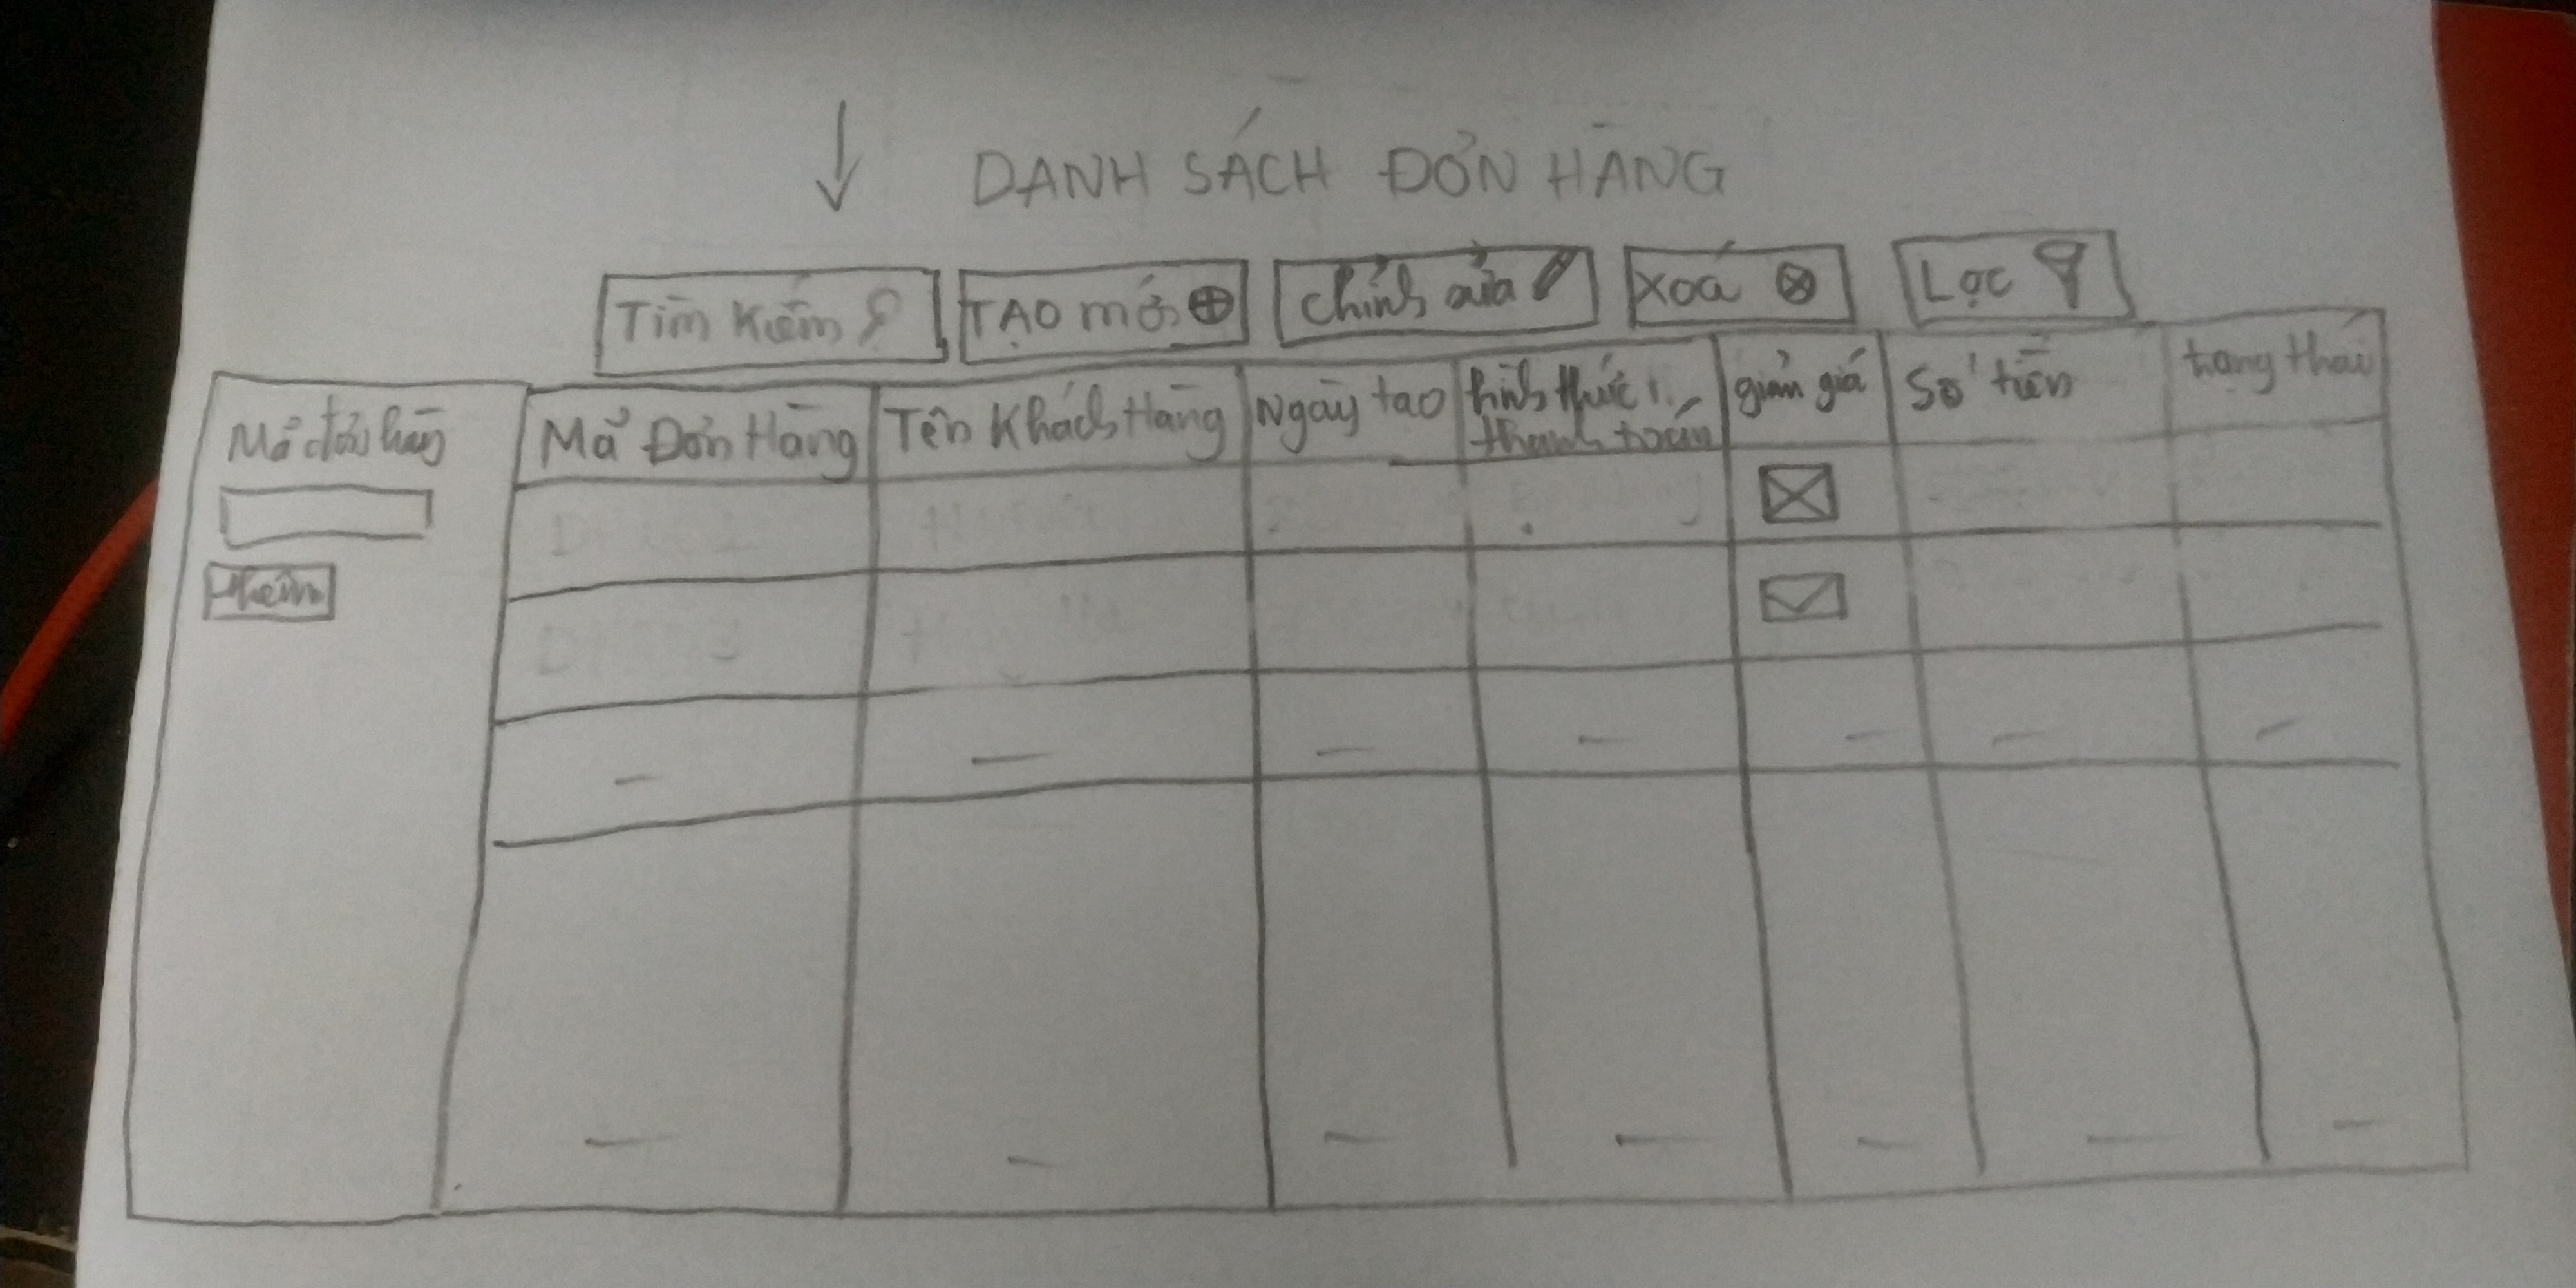 DANH SÁCH ĐƠN HÀNG
Tìm kiếm TẠO mới chỉnh sửa XOÁ LỌC
Mã đơn hàng
Mã Đơn Hàng Tên Khách Hàng Ngày tao hình thức thanh toán giảm giá Số tiền trạng thái